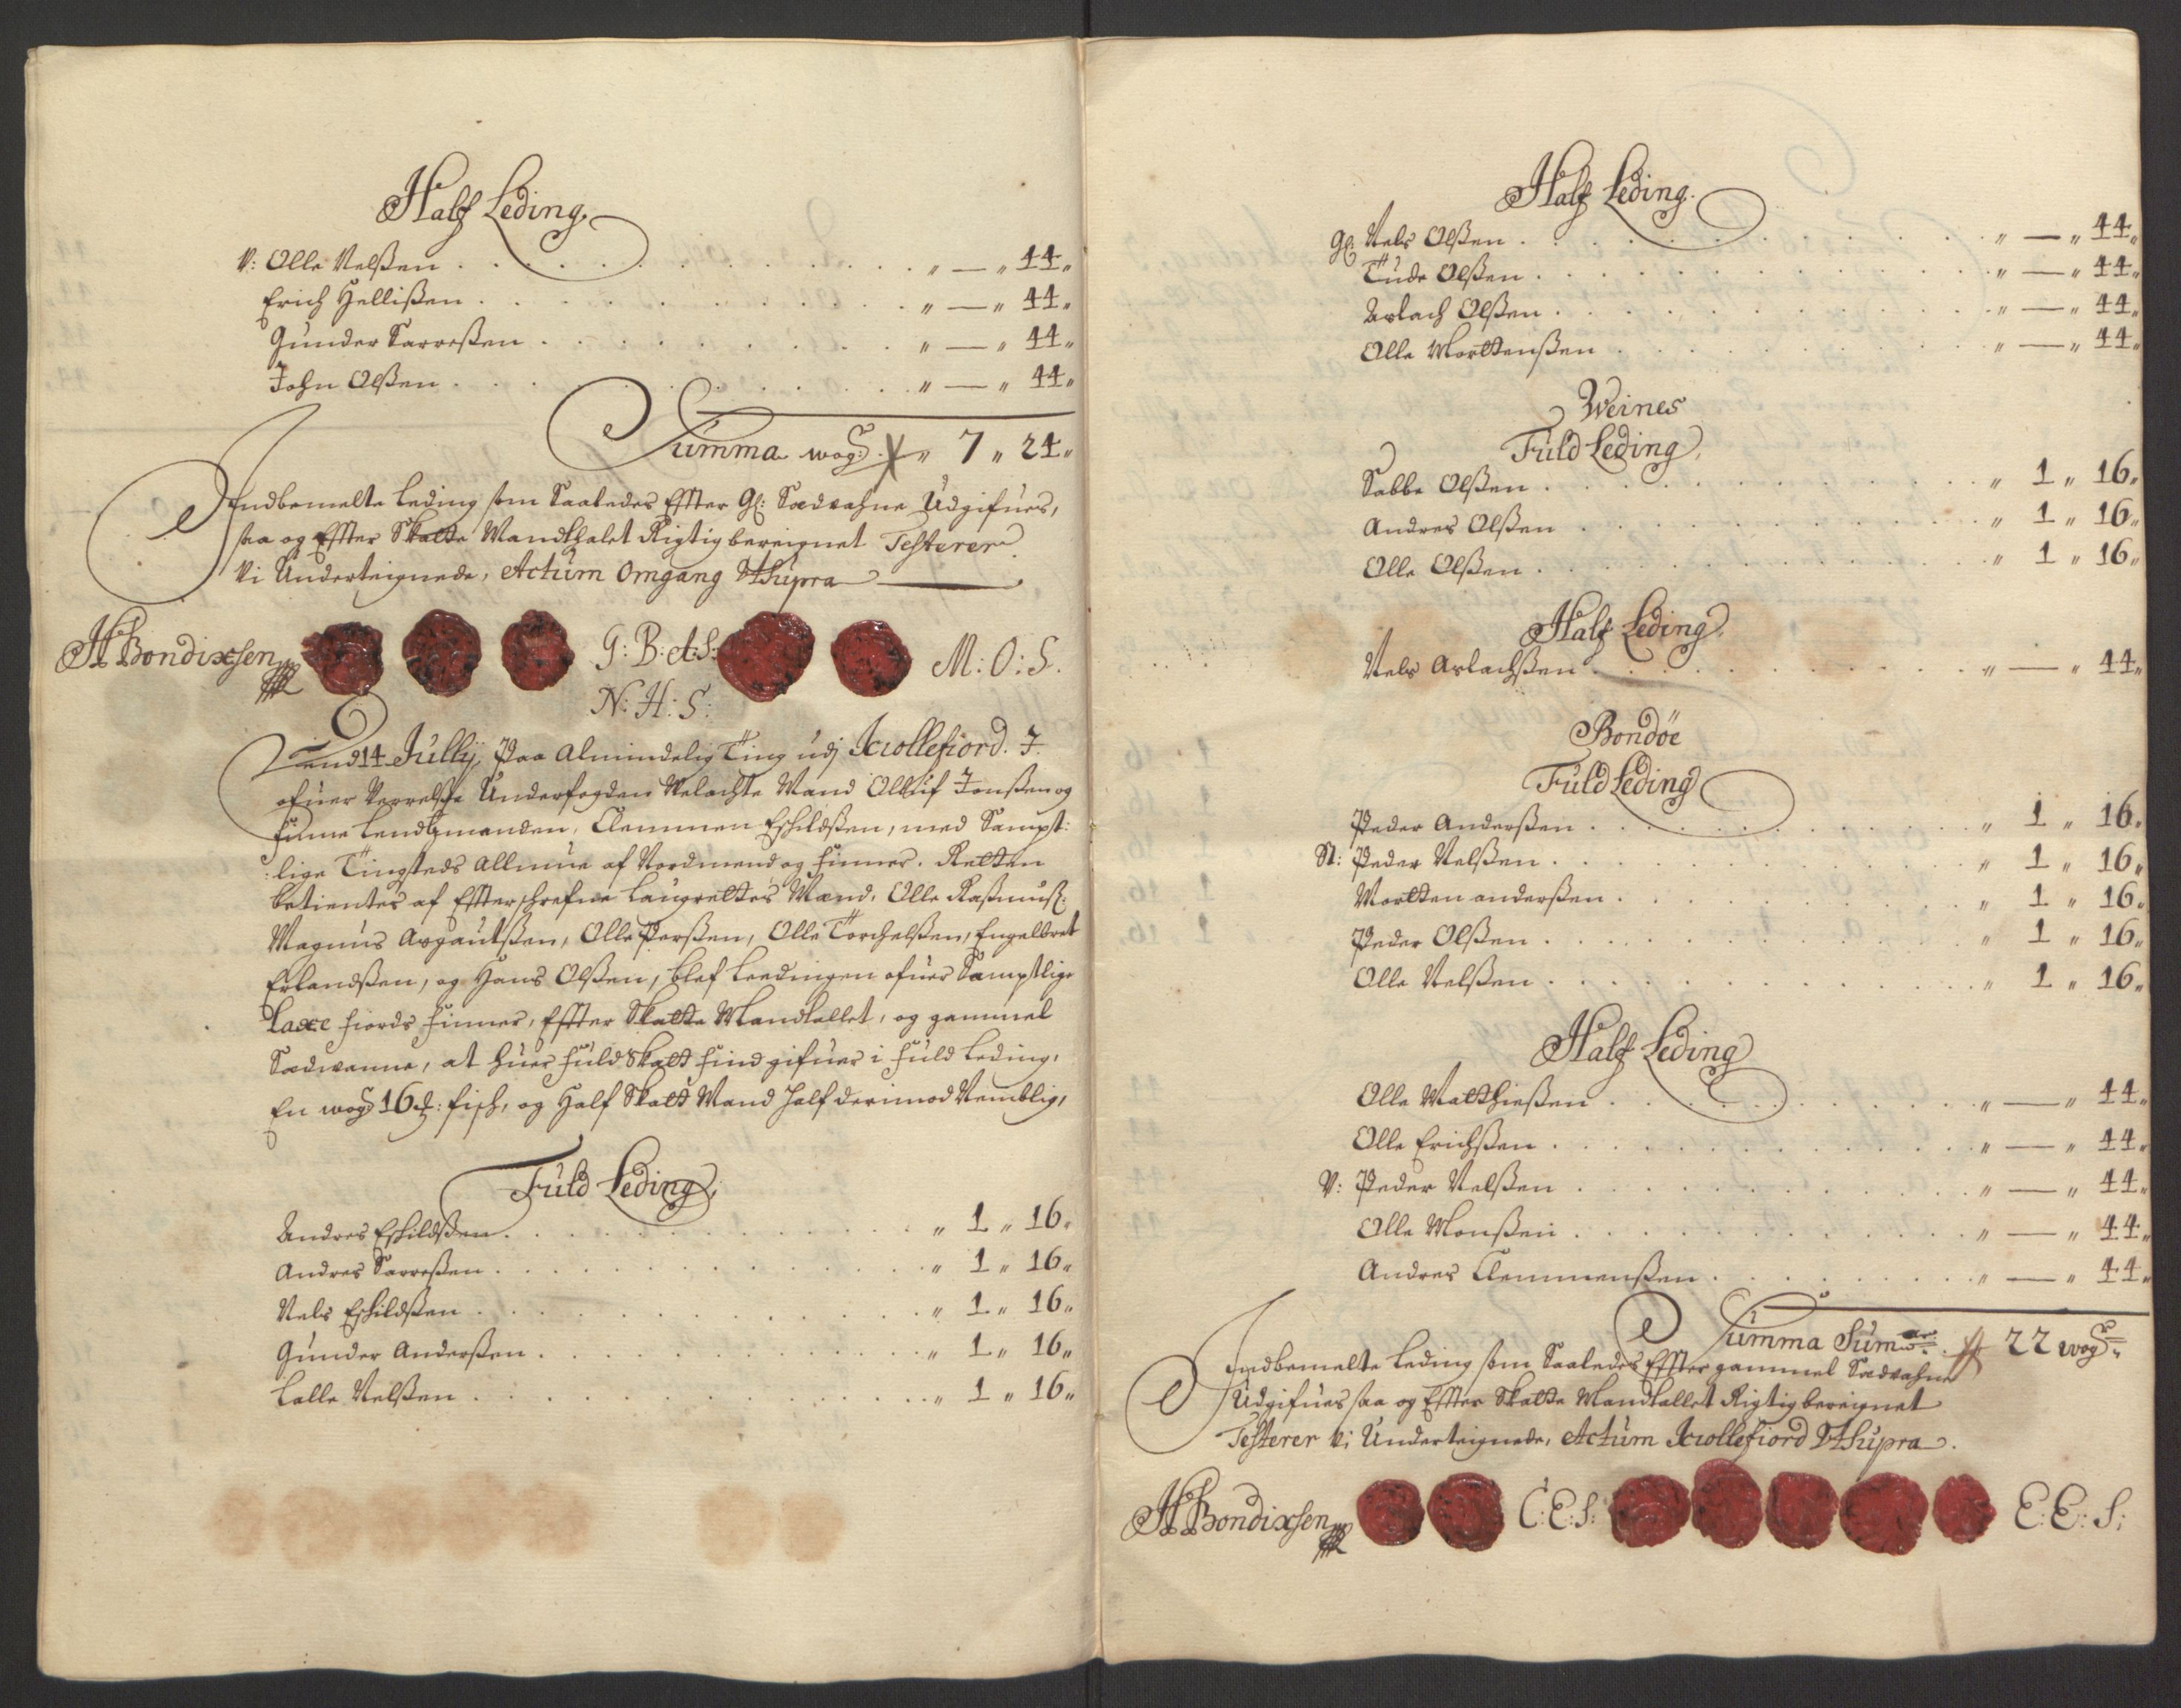 Half Leding.
V: Olle Nelßen . . . . „ — „ 44„
Erich Hellißen . . . . „ — „ 44„
Gunder Sarreßen . . . . „ — „ 44„
John Olßen . . . . „ — „ 44„
Summa wog: „ 7 „ 24„
Indbemelte Leding som Saaledes Effter Gl: Sædvahne Udgifues,
saa og Effter Skatte Mandthalet Rigtig bereignet Testerer
Vi Underteignede, Actum Omgang Ut Supra
H Bondixsen G: B: A: S: M: O: S.
N: H: S:
End 14 Jullij, Paa Almindelig Ting udj Kiollefiord. J
ofuer Verrelße Underfogden Velachte Mand Olluf Jonßen og
finne Lendßmanden, Clemmen Eskildßen, med Sampt:
:lige Tingsteds Allmue af Nordmend og finner. Retten
betientes af Effterschrefne Laugrettes Mænd, Olle Raßmuß:
Magnus Asgautßen, Olle Perßen, Olle Torchelßen, Engelbret
Erlandßen, og Hans Olßen, blef Leedingen ofuer Samptlige
Laxe fiords finner, Effter Skatte Mandtallet, og gammel
Sædwanne, at huer fuld Skatt find gifuer i fuld Leding,
En wog 16 ℔: fisch, og Half Skatt Mand half derimod Nemblig,
Fuld Leding,
Andres Eskildßen . . . . „ 1 „ 16„
Andres Sarreßen . . . . „ 1 „ 16„
Nels Eskildßen . . . . „ 1 „ 16„
Gunder Anderßen . . . . „ 1 „ 16„
Lalle Nelßen . . . . „ 1 „ 16„
Half Leding.
Gl: Nels Olßen . . . . „ — „ 44„
Tude Olßen . . . . „ — „ 44„
Aslach Olßen . . . . „ — „ 44„
Olle Morttenßen . . . . „ — „ 44„
Weines
Fuld Leding,
Sabbe Olßen . . . . „ 1 „ 16„
Andres Olßen . . . . „ 1 „ 16„
Olle Olßen . . . . „ 1 „ 16„
Half Leding,
Nels Aslachßen . . . . „ — „ 44„
Bondöe
Fuld Leding
Peder Anderßen . . . . „ 1 „ 16„
St: Peder Nelßen . . . . „ 1 „ 16„
Mortten anderßen . . . . „ 1 „ 16„
Peder Olßen . . . . „ 1 „ 16„
Olle Nelßen . . . . „ 1 „ 16„
Half Leding
Olle Matthießen . . . . „ — „ 44„
Olle Erichßen . . . . „ — „ 44„
V: Peder Nelßen . . . . „ — „ 44„
Olle Monßen . . . . „ — „ 44„
Andres Clemmenßen . . . . „ — „ 44„
Summa Sum̅ar̅. 22 wog„
Indbemelte Leding som Saaledes Effter gammel Sædvahne
Udgifues saa og Effter Skatte Mandtallet Rigtig bereignet
Testerer Vi Underteignede, Actum Kiollefiord Ut Supra.
H Bondixsen C: E: S: E: E: S: